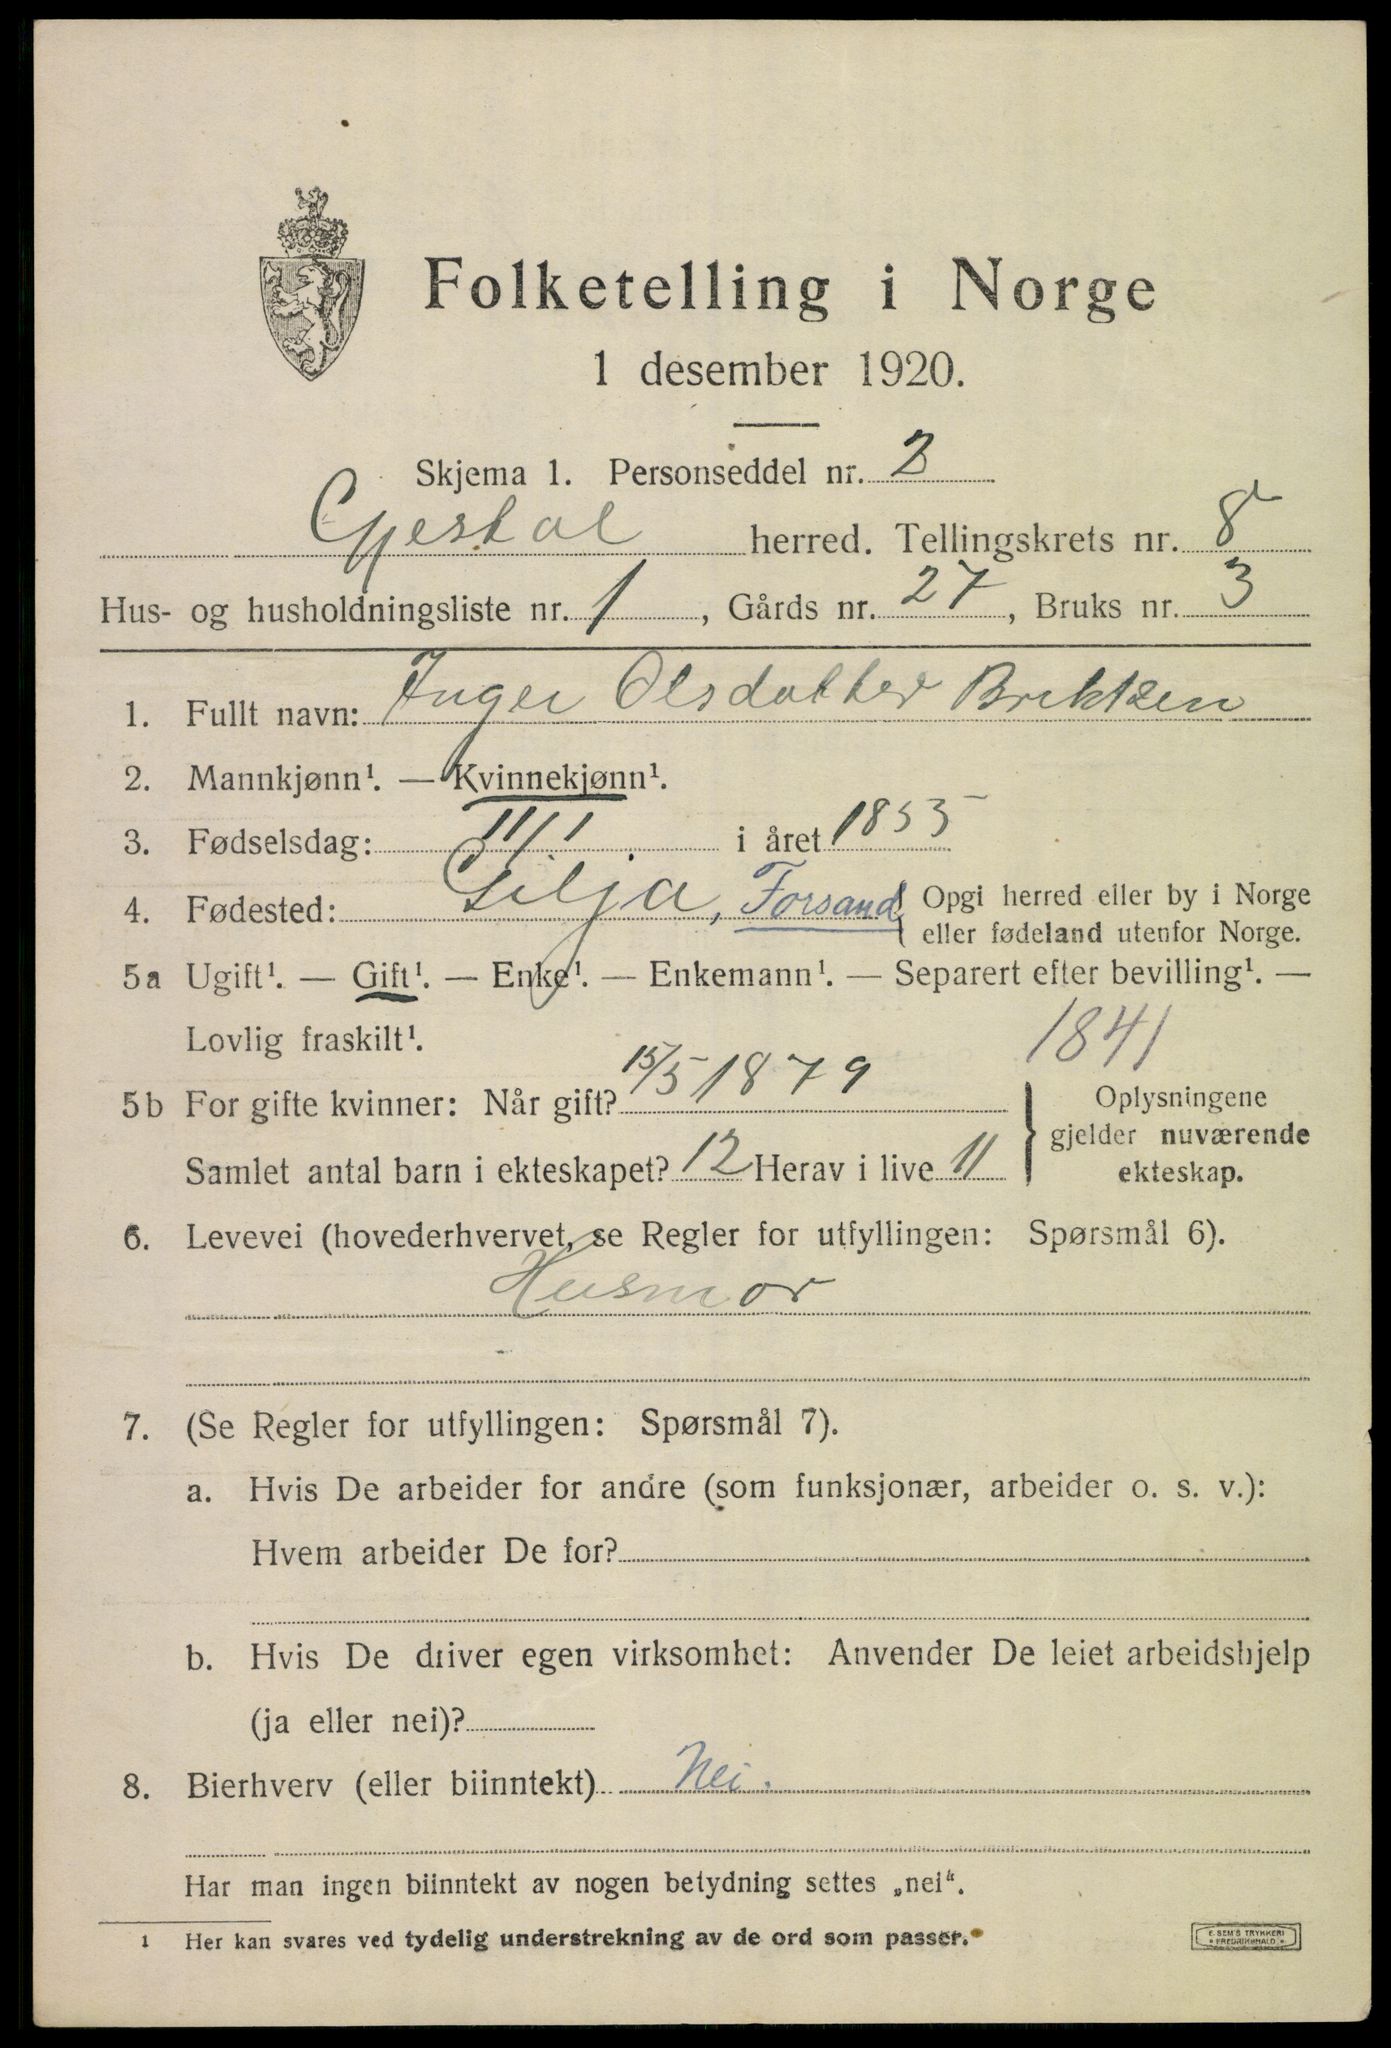 Folketelling i Norge
1 desember 1920.
Skjema 1. Personseddel nr. 2
Gjestal herred. Tellingskrets nr. 8
Hus- og husholdningsliste nr. 1, Gårds nr. 27, Bruks nr. 3
1. Fullt navn: Inger Olsdatter Brekken
2. Mannkjønn¹. — Kvinnekjønn¹.
3. Fødselsdag: 11/1 i året 1855
4. Fødested: Gilja, Forsand { Opgi herred eller by i Norge
eller fødeland utenfor Norge.
5a Ugift¹. — Gift¹. — Enke¹. — Enkemann¹. — Separert efter bevilling¹. —
Lovlig fraskilt¹.
1841
5b For gifte kvinner: Når gift? 15/5 1879
Samlet antal barn i ekteskapet? 12 Herav i live 11
} Oplysningene
gjelder nuværende
ekteskap.
6. Levevei (hovederhvervet, se Regler for utfyllingen: Spørsmål 6).
Husmor
7. (Se Regler for utfyllingen: Spørsmål 7).
a. Hvis De arbeider for andre (som funksjonær, arbeider o. s. v.):
Hvem arbeider De for?
b. Hvis De driver egen virksomhet: Anvender De leiet arbeidshjelp
(ja eller nei)?
8. Bierhverv (eller biinntekt) Nei.
Har man ingen biinntekt av nogen betydning settes „nei“.
¹ Her kan svares ved tydelig understrekning av de ord som passer.
E. SEM'S TRYKKERI
FREDRIKSHALD